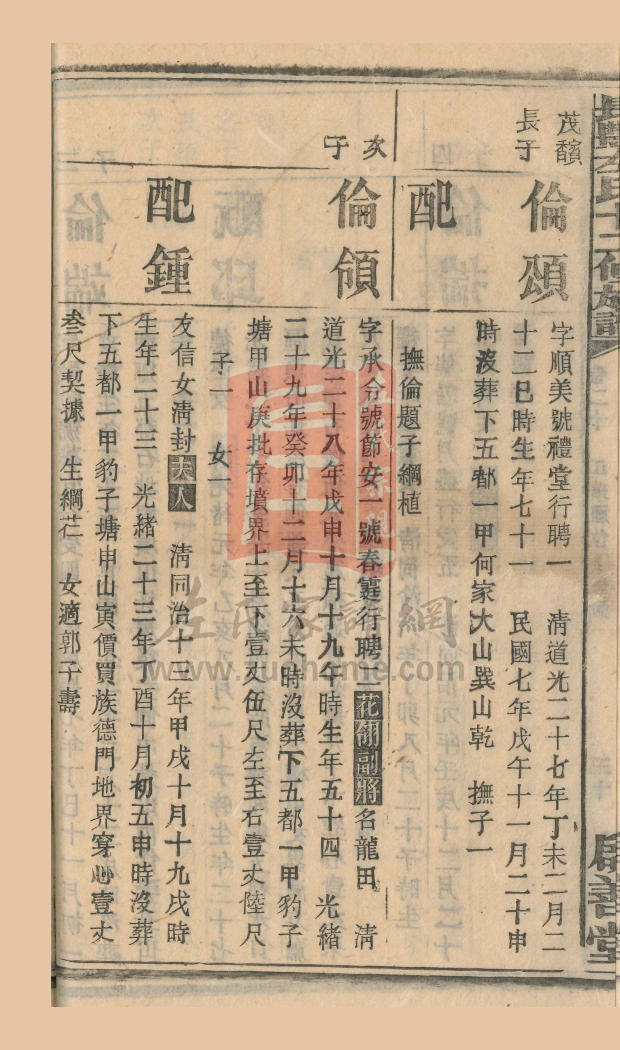 茂馪
長子
倫頌
字順美號禮堂行聘一　清道光二十七年丁未二月二
十二巳時生年七十一　民國七年戊午十一月二十申
時沒葬下五都一甲何家大山巽山乾　撫子一
配
撫倫題子綱植
次
子
倫領
字承令號節安一號春
行聘三花翎副將名龍田　清
道光二十八年戊申十月十九午時生年五十四　光緒
二十九年癸卯十二月十六未時沒葬下五都一甲豹子
塘甲山庚批存墳界上至下壹丈伍尺左至右壹丈陸尺
子一　女一
配鍾
友信女淸封夫人　淸同治十三年甲戌十月十九戌時
生年二十三　光緒二十三年丁酉十月初五申時沒葬
下五都一甲豹子塘申山寅價買族德門地界穿心壹丈
叁尺契據　生綱茳　女適郭子壽
氏十二修族譜
啟善堂
左氏家譜網
www.zuohome.com